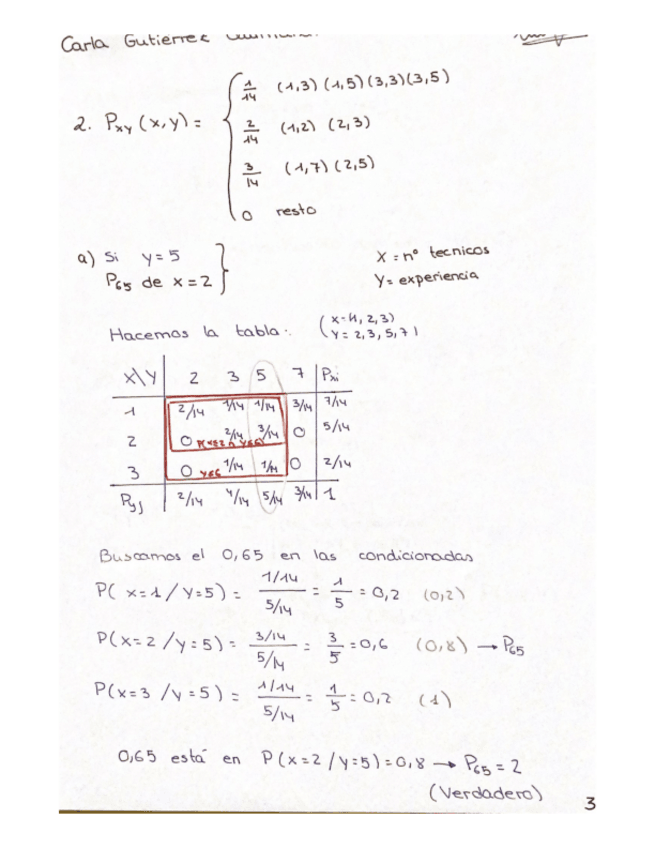 Carla Gutierrez
2. Pxy (x,y) =
1/14 (1,3) (1,5) (3,3) (3,5)
2/14 (1,2) (2,3)
3/14 (1,7) (2,5)
0 resto
a) Si y = 5
P65 de x = 2
X = nº tecnicos
Y = experiencia
Hacemos la tabla: (x = 1, 2, 3)
Y = 2, 3, 5, 7)
X\Y 2 3 5 7 Pxi
1 2/14 1/14 1/14 3/14 7/14
2 0 2/14 3/14 0 5/14
3 0 y≤6 1/14 1/14 0 2/14
Pyj 2/14 4/14 5/14 3/14 1
Buscamos el 0,65 en las condicionadas
P( x=1 / y=5) = 1/14 / 5/14 = 1/5 = 0,2 (0,2)
P(x=2 / y=5) = 3/14 / 5/14 = 3/5 = 0,6 (0,8) → P65
P(x=3 / y=5) = 1/14 / 5/14 = 1/5 = 0,2 (1)
0,65 está en P(x=2 / y=5) = 0,8 → P65 = 2
(Verdadero)
3